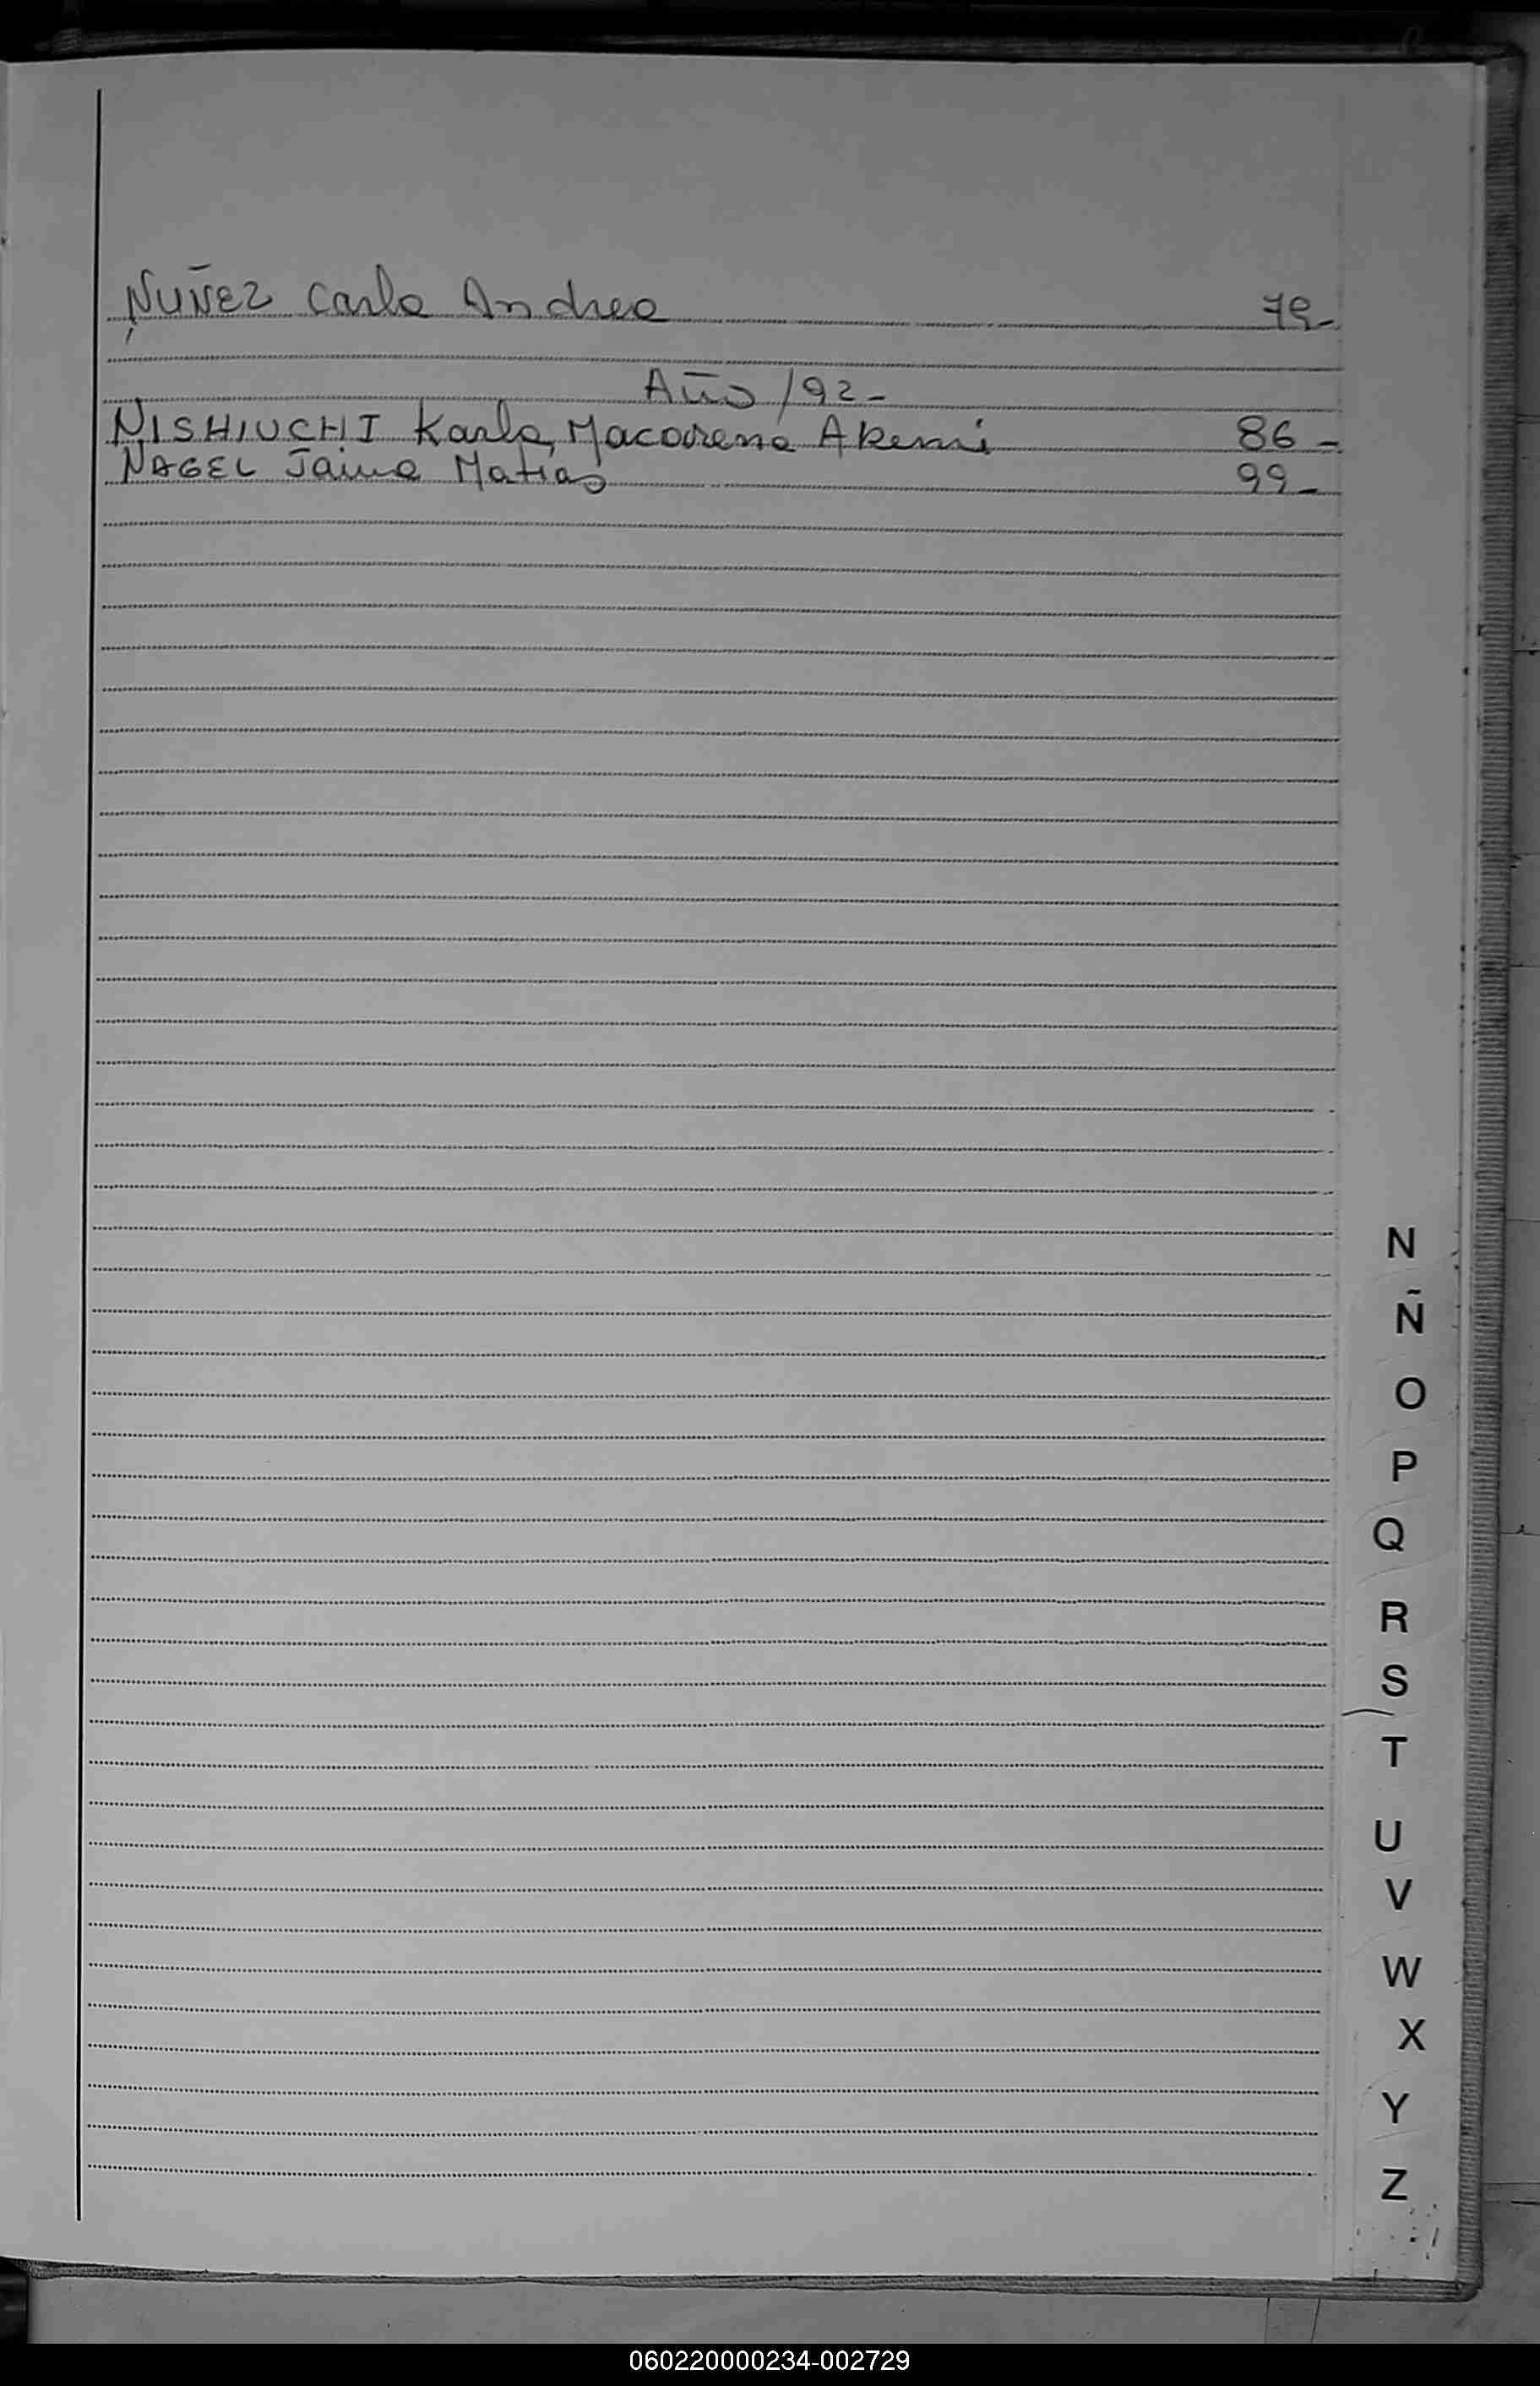 NUÑEZ Carla Andrea 79-
Año /92-
NISHIUCHI Karla Macarena Akemi 86-
NAGEL Jaime Matias 99-
N
Ñ
O
P
Q
R
S
T
U
V
W
X
Y
Z
060220000234-002729